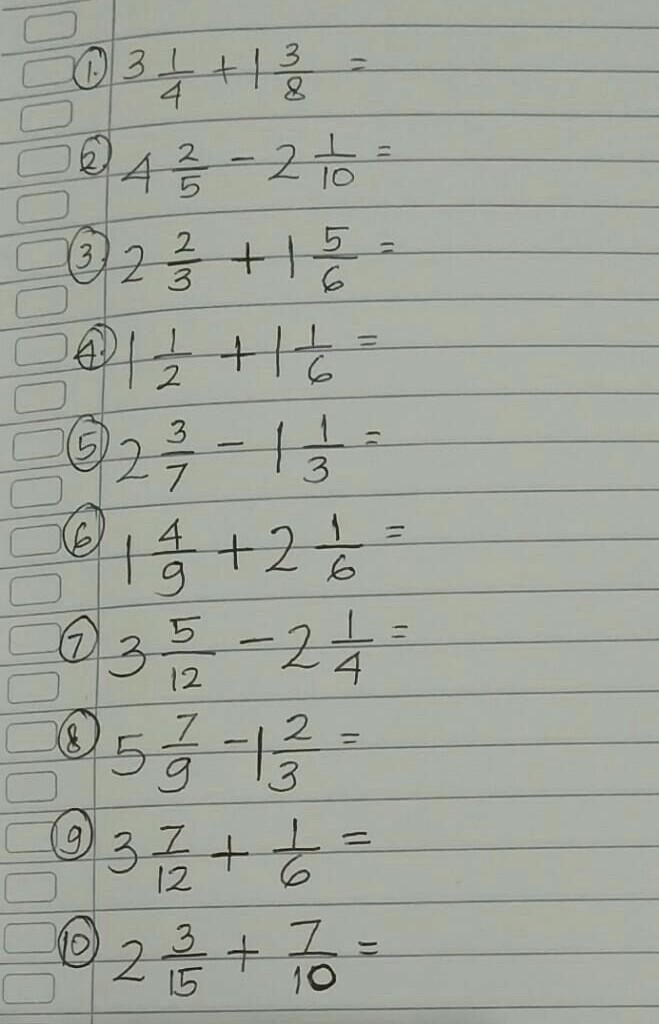 1. 3 1/4 + 1 3/8 =
2. 4 2/5 - 2 1/10 =
3. 2 2/3 + 1 5/6 =
4. 1 1/2 + 1 1/6 =
5 2 3/7 - 1 1/3 =
6 1 4/9 + 2 1/6 =
7 3 5/12 - 2 1/4 =
8 5 7/9 - 1 2/3 =
9 3 7/12 + 1/6 =
10 2 3/15 + 7/10 =